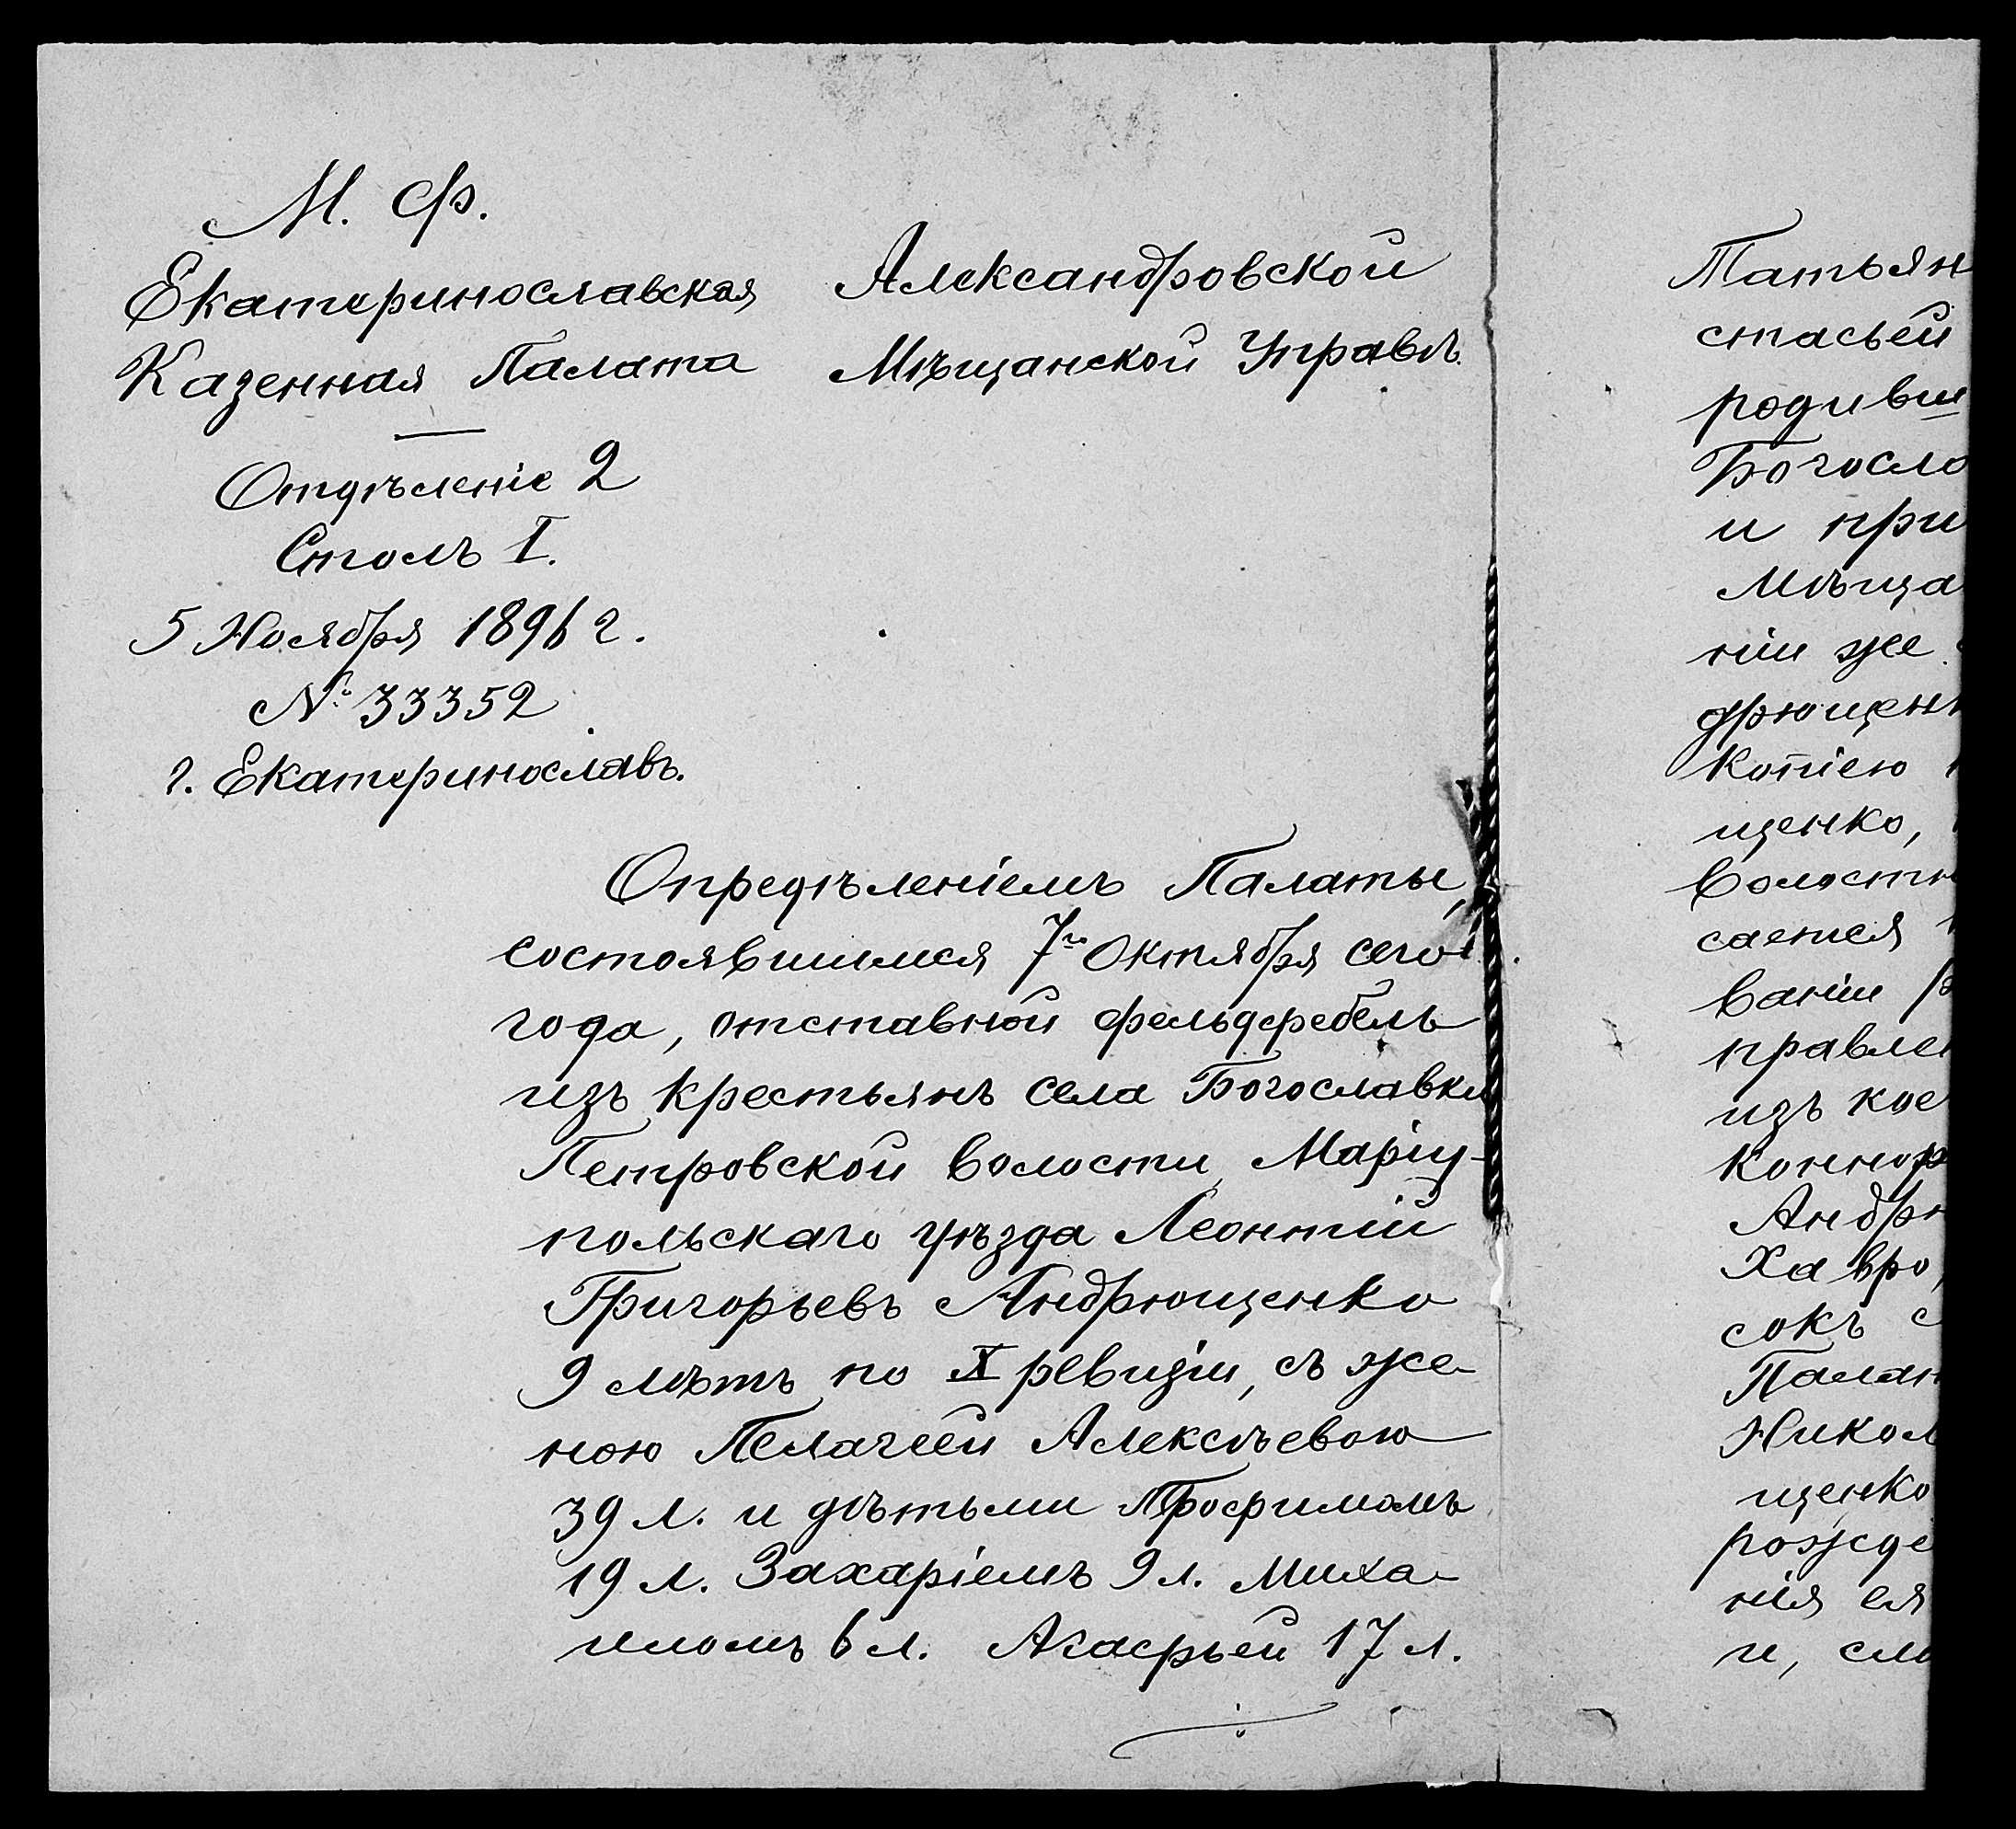 М. Ф.
Екатеринославская
Казенная Палата
Отдѣленіе 2
Столъ I.
5 Ноября 1896 г.
№ 33352
г. Екатеринославъ.
Александровской
Мѣщанской Управѣ.
Опредѣленіемъ Палаты,
состоявшимся 7го Октября сего
года, отставной фельдфебель
изъ крестьянъ села Богославки
Петровской волости, Маріу-
польскаго уѣзда Леонтій
Григорьевъ Андрющенко
9 лѣтъ по X ревизіи, съ же-
ною Пелагеей Алексѣевою
39 л. и дѣтьми Трофимомъ
19 л. Захаріемъ 9 л. Миха-
иломъ 6 л. Агафьей 17 л.
Татьян
стасьей
родивш
Богосло
и при
Мѣща
ніи же
дрющенк
Копіею
щенко,
Волостн
сается
ваніи
правле
изъ кое
Коннор
Андрю
Хавро
сокъ с
Палат
Никол
щенко
рожде
нія ея
и, сл